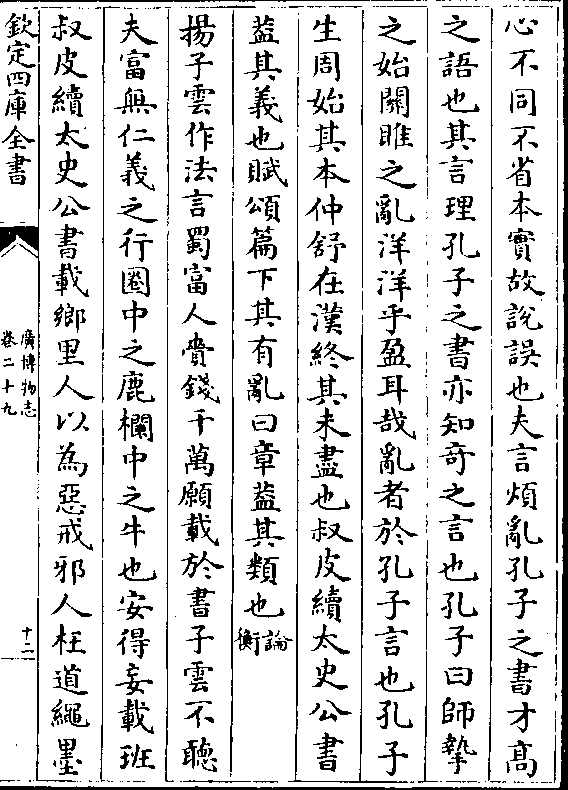 心不同不省本實故說誤也夫言煩亂孔子之書才高
之語也其言理孔子之書亦知竒之言也孔子曰師摯
之始關雎之亂洋洋乎盈耳哉亂者於孔子言也孔子
生周始其本仲舒在漢終其末盡也叔皮續太史公書
葢其義也賦頌篇下其有亂曰章葢其類也論衡
揚子雲作法言蜀富人賫錢千萬願載於書子雲不聽
夫富無仁義之行圈中之鹿欄中之牛也安得妄載班
叔皮續太史公書載鄉里人以為惡戒邪人枉道繩墨
欽定四庫全書
廣博物志
卷二十九
十二